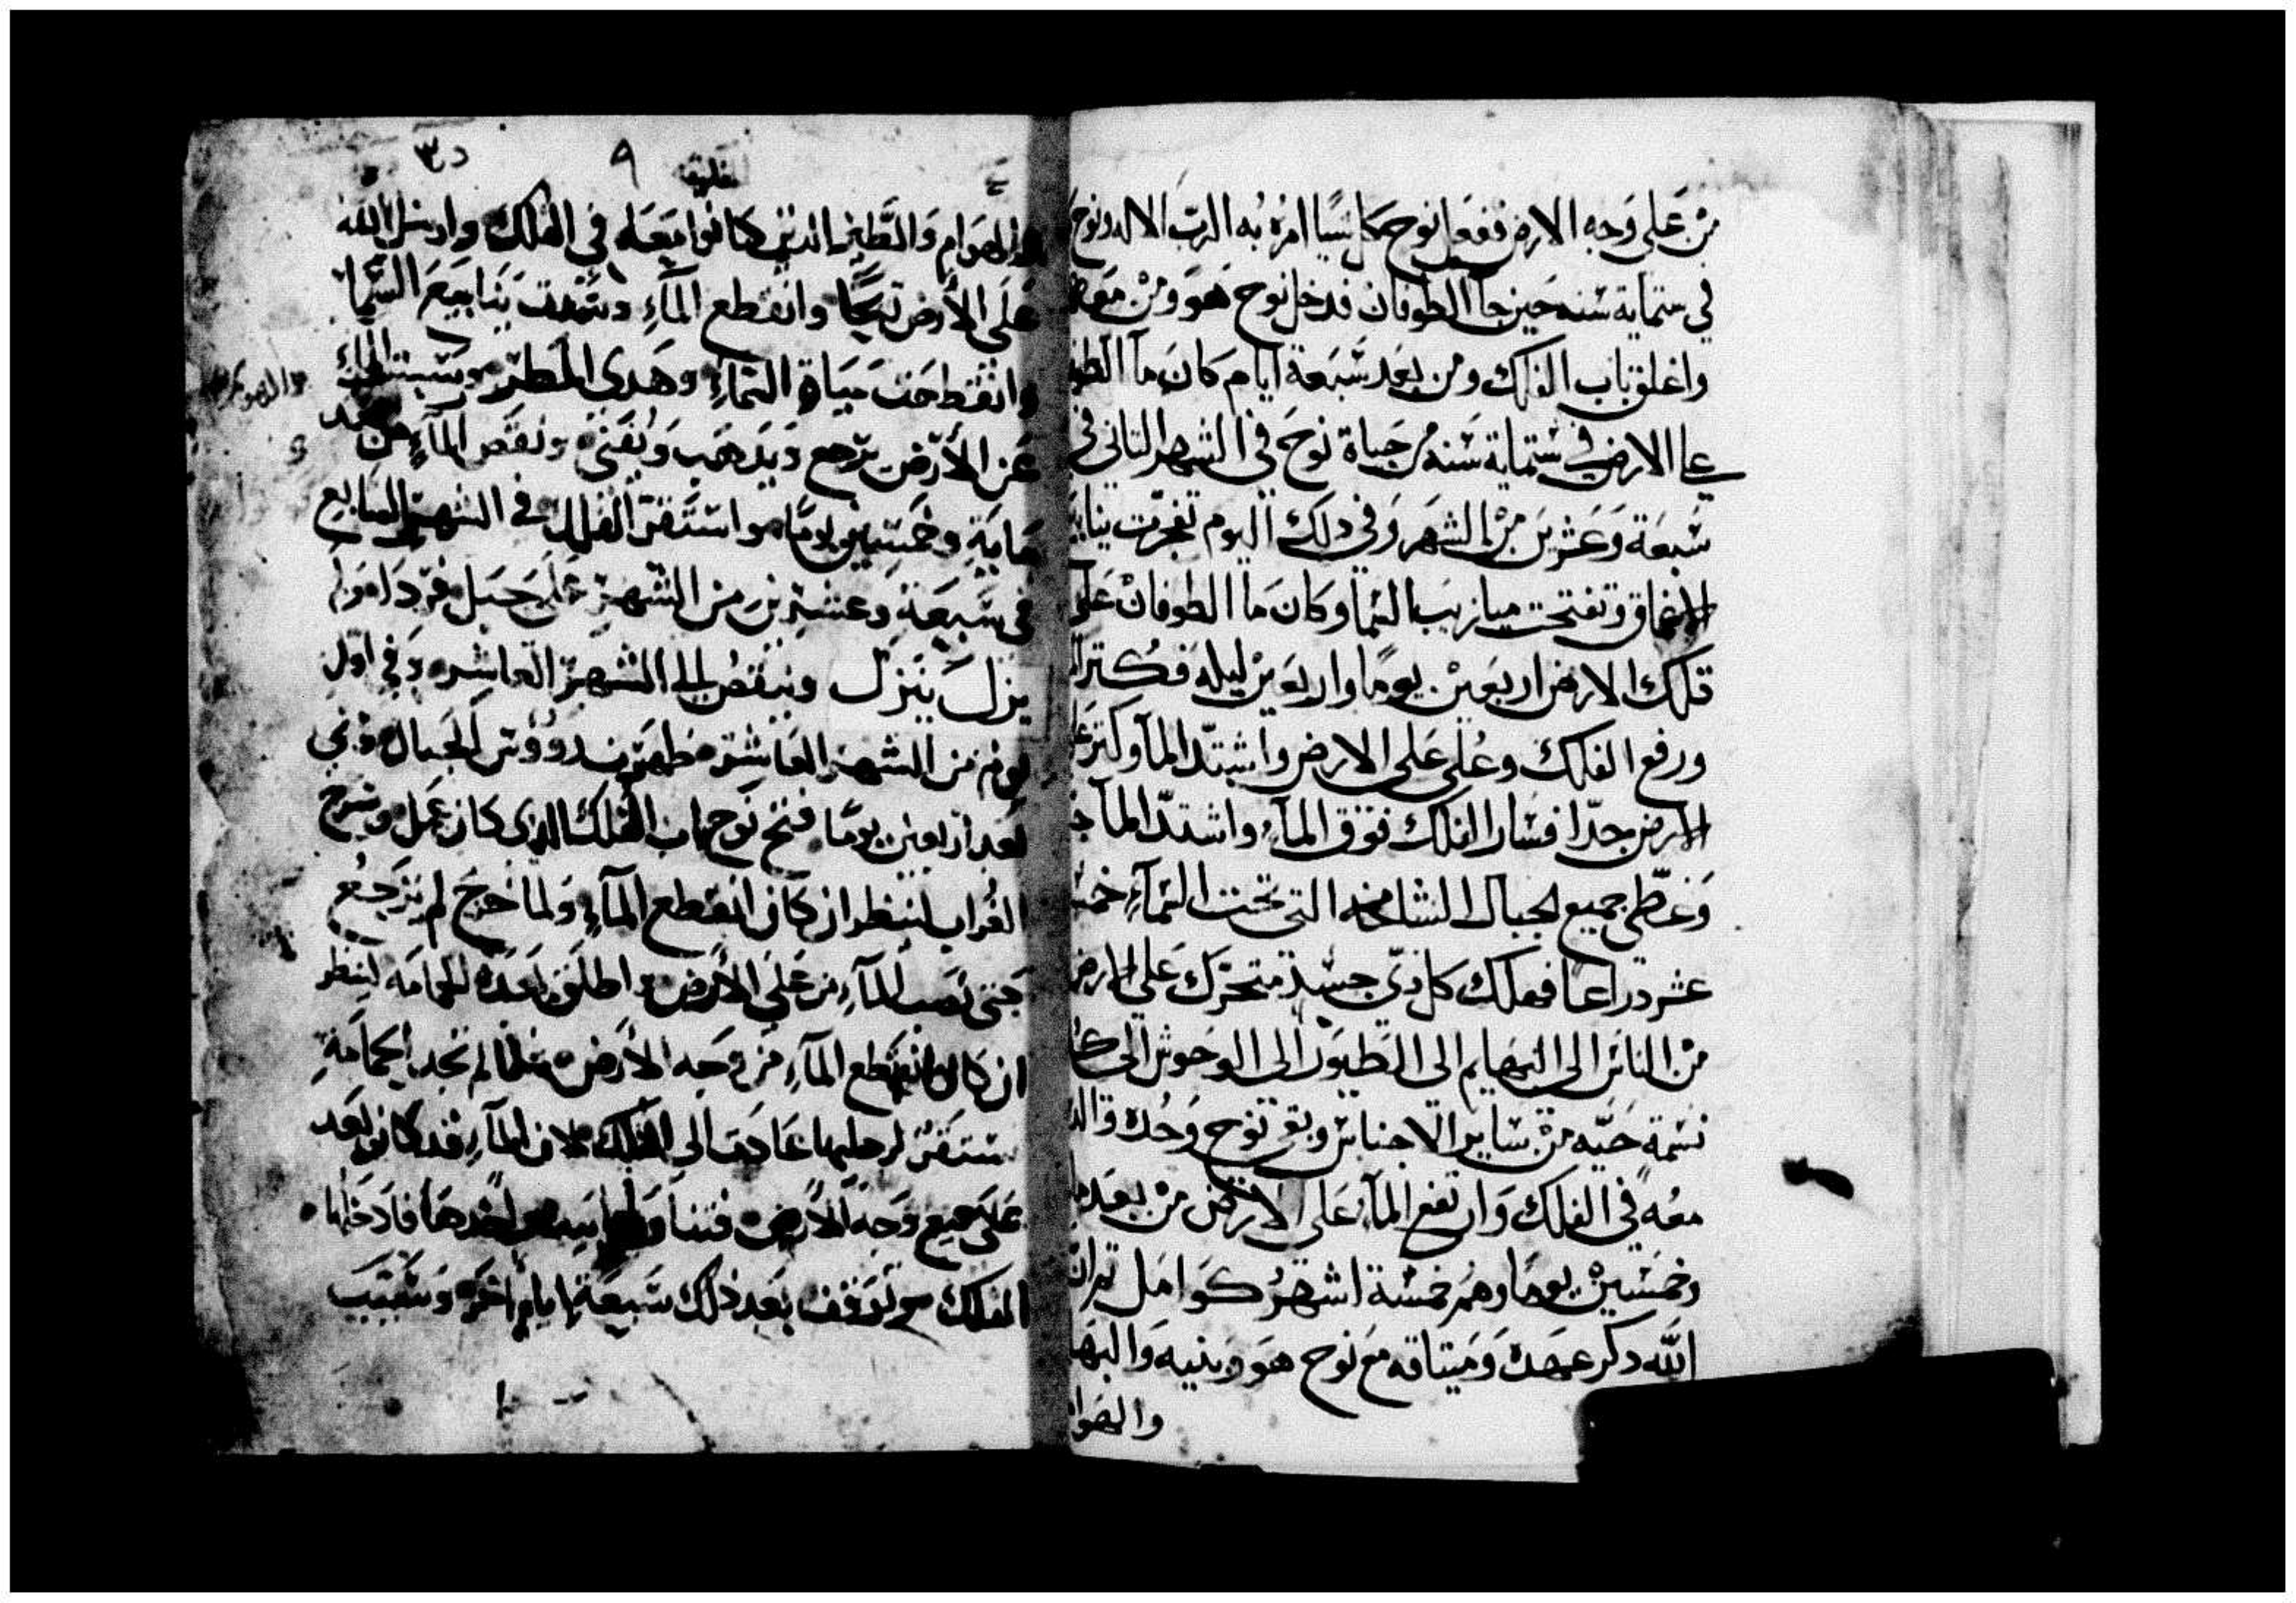 من على وجه الارض ففعل نوح كل شيا امره به الرب الاله ونوح
في ستماية سنه حين جا الطوفان فدخل نوح هو ومن معه
واغلق باب الفلك ومن بعد سبعة ايام كان ما الطو
على الارض في ستماية سنه من حياة نوح في الشهر الثاني في
سبعة وعشرين من الشهر وفي دلك اليوم تفجرت ينابيـ
الاغماق وتفتحت ميازيب السما وكان ما الطوفان على
الارض اربعين يومًا واربعين ليله فكتر
ورفع الفلك وعلى على الارض واشتدّ المآ وكتر
الارض جدّا فسار الفلك فوق المآء واشتدّ المآ
وغطّى جميع الجبال الشامخه التى تحت السمآء خمسـ
عشر دراعا فهلك كل دى جسد متحرّك على الارض
من الناس الى البهايم الى الطيور الى الوحوش الى كل
نسمة حيّه من ساير الاجناس وبقى نوح وحده والد
معه في الفلك وارتفع المآء على الارض من بعد
وخمسين يومًا وهم خمسة اشهر كوامل تم ان
الله دكر عهده وميتاقه مع نوح هو وبنيه والبها
والهوا
٩
الهوام والطير الدين كانوا معه في الفلك وارسل الله
على الأرض ريحًا وانقطع المآء وسدت ينابيع السما
وانقطعت مياة السمآء وهدى المطر
عن الأرض يرجع ويدهب ويفنى ونقص المآء من بعد
مايةٍ وخمسين يومًا واستقر الفلك في الشهر السابع
في سبعة وعشرين من الشهر على جبل قردا ولم
يزل ينزل وينقص الى الشهر العاشر وفي اول
يوم من الشهر العاشر ظهرت رووس الجبال وفي
بعد اربعين يومًا فتح نوح باب الفلك الدى كان عمل وسرح
الغراب لينظر ان كان انقطع المآء ولما خرج لم يرجع
حتى نضب المآء من على الأرض واطلق بعده الحمامه لينظر
ان كان انقطع المآء من وجه الارض فلما لم تجد الحمامة
مستقر لرجليها عادت الى الفلك لان المآء قد كان بعد
على جميع وجه الأرض فاخدها فادخلها
الفلك تم توقف بعد دلك سبعة ايام اخر وسيب